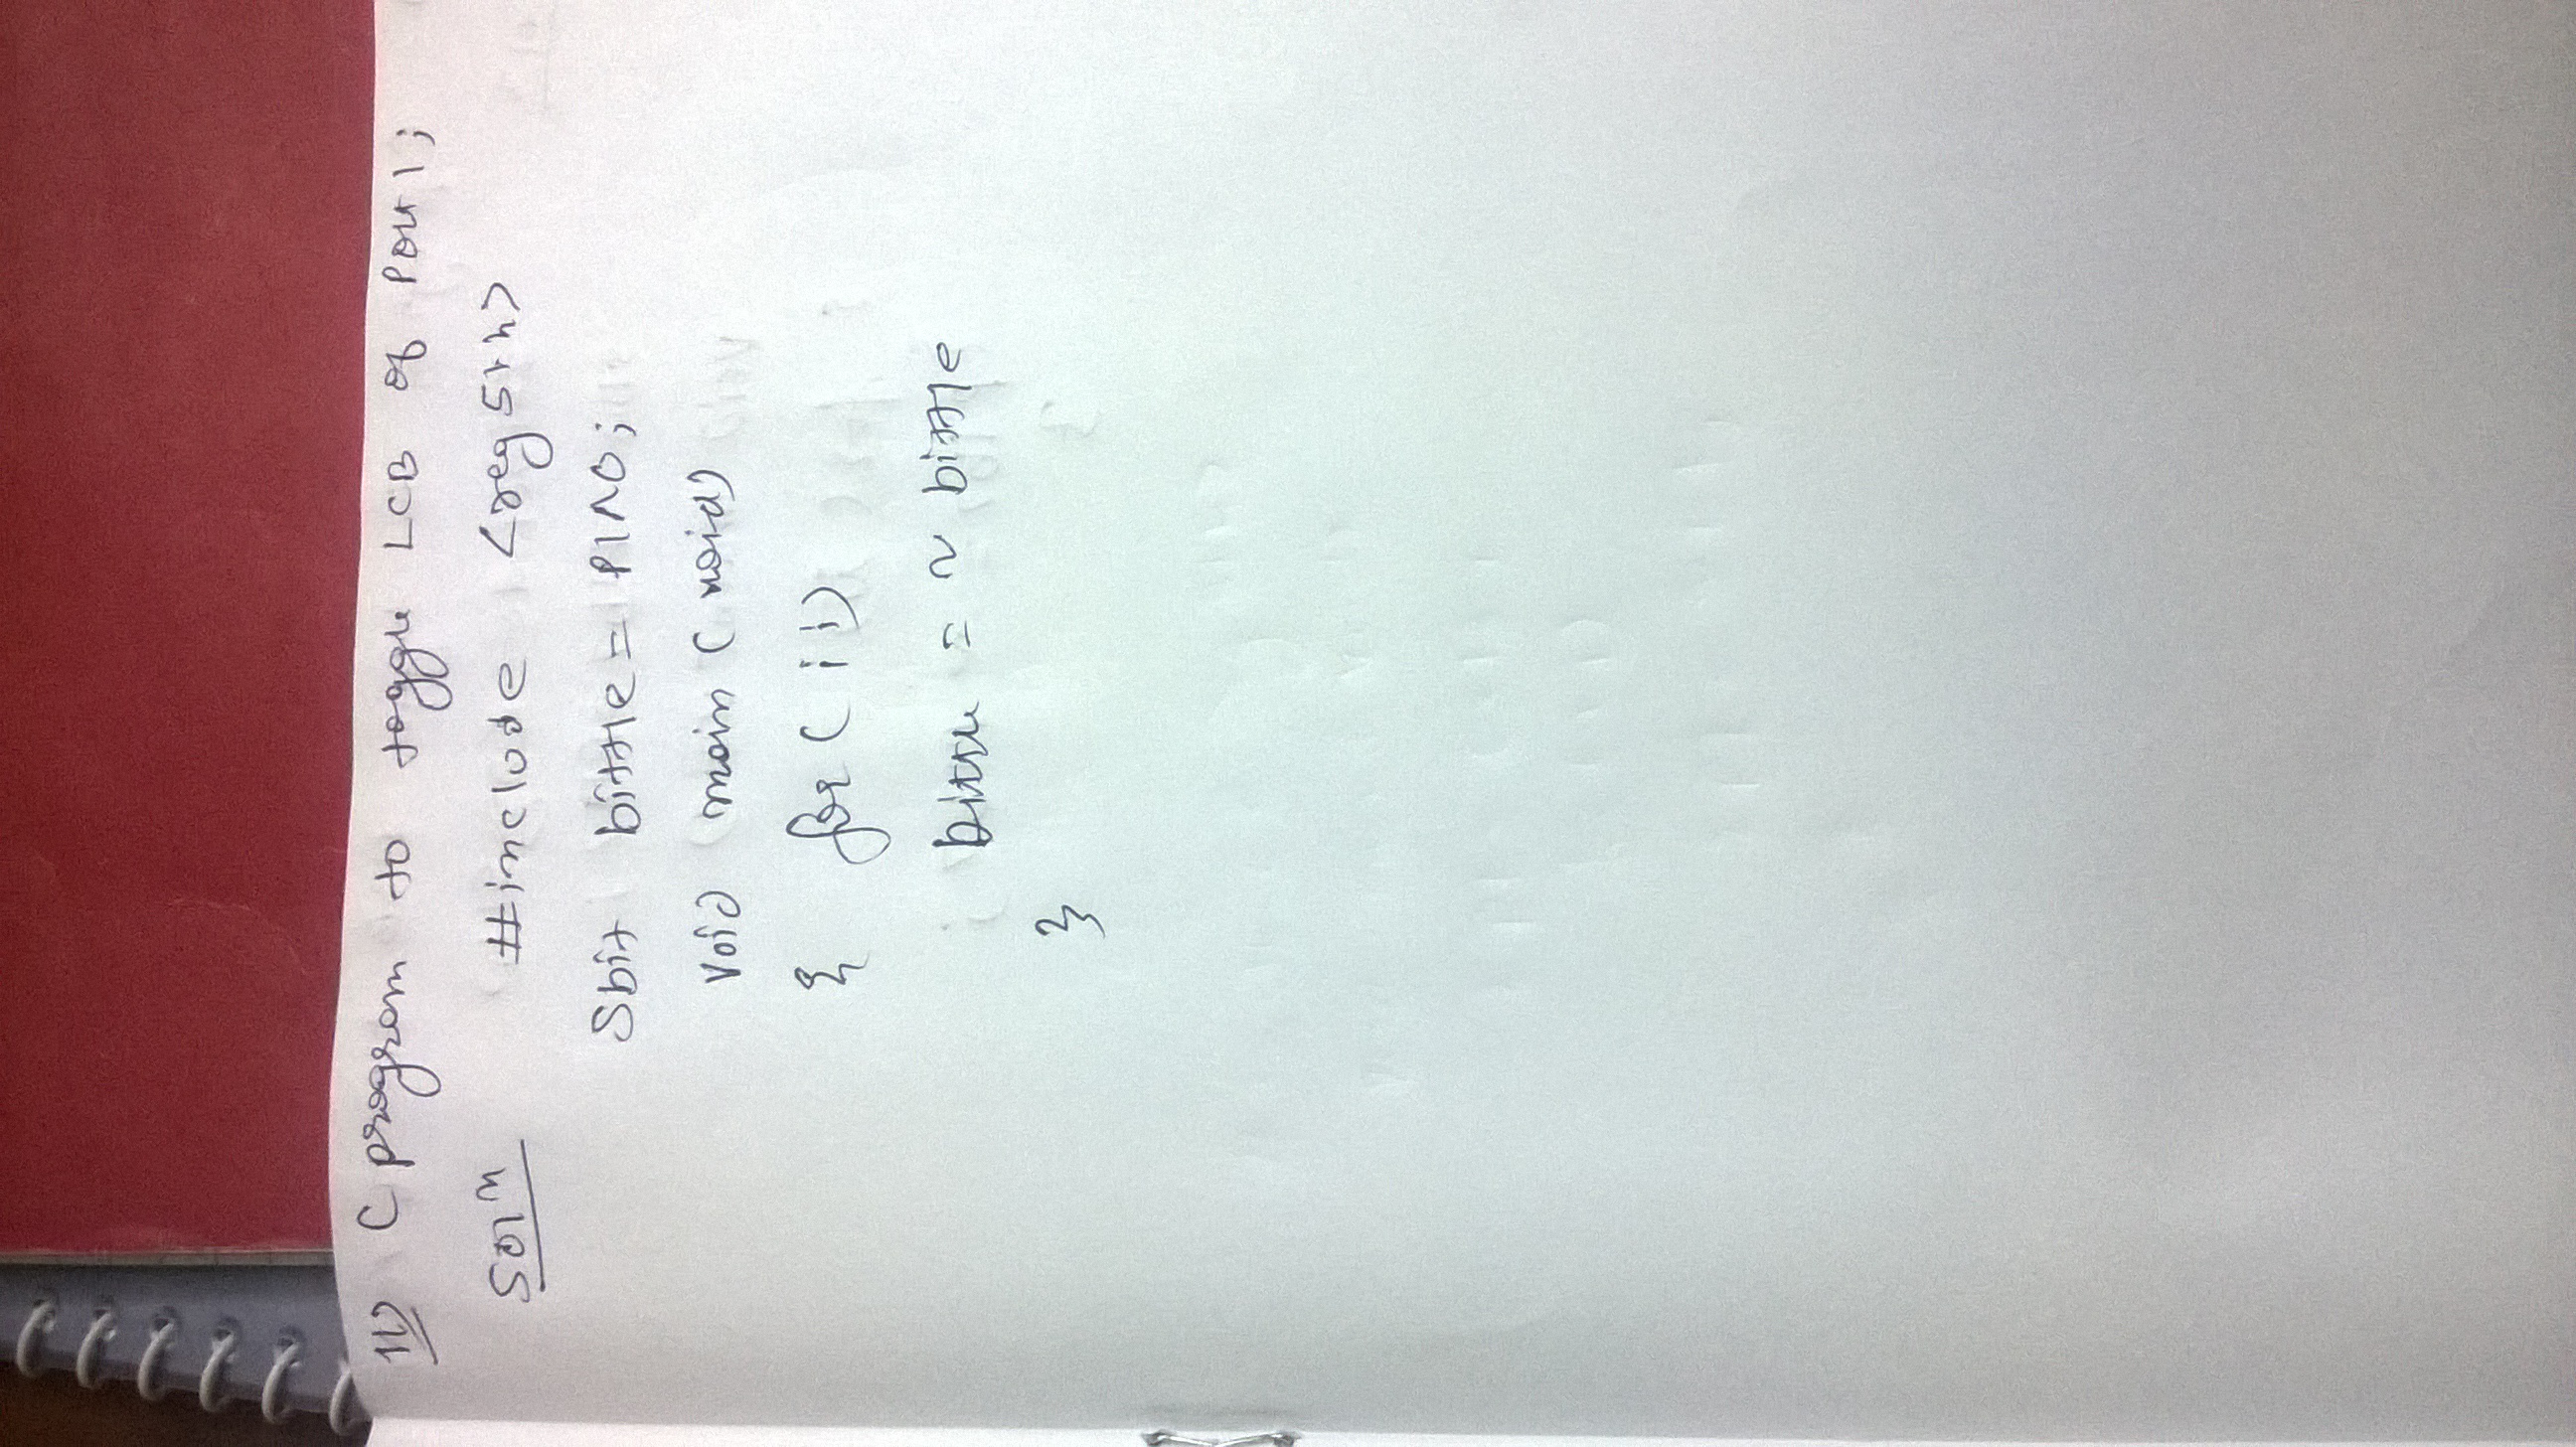 11) C program to toggle LCB of Port 1;
Soln
#include <reg51.h>
Sbit bittle = P1^0;
void main (void)
{ for (;;)
bittle = ~ bittle
}